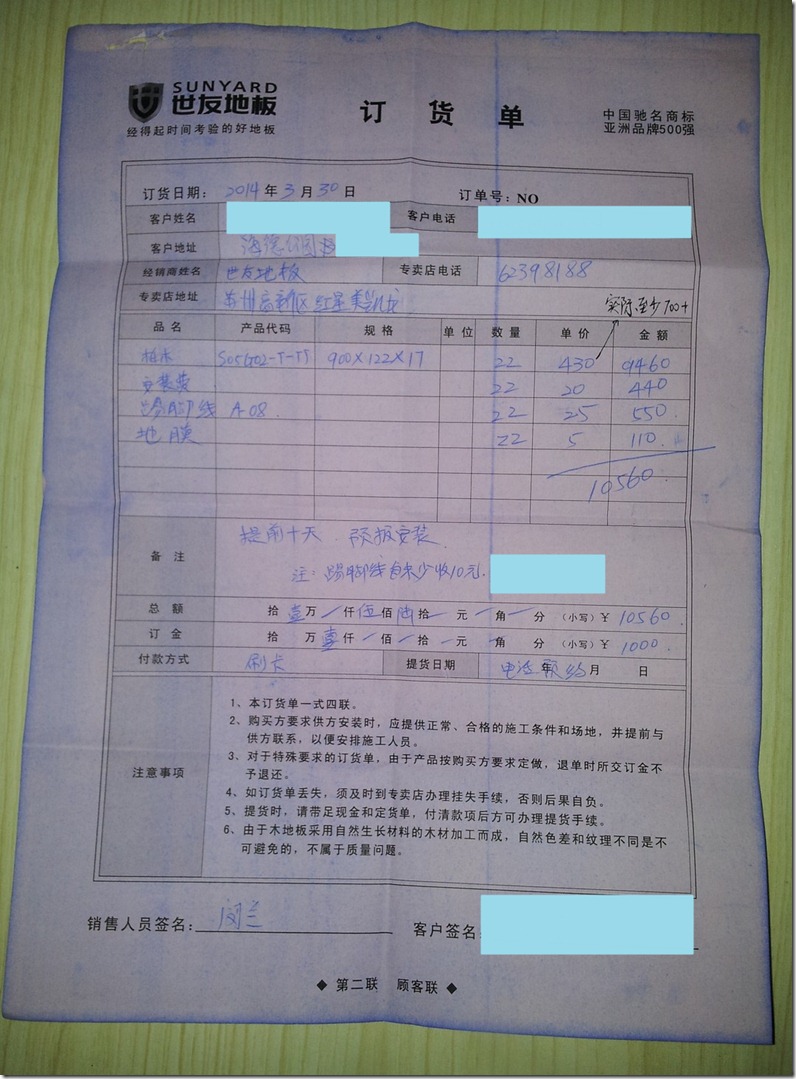 SUNYARD
世友地板
经得起时间考验的好地板
订货单
中国驰名商标
亚洲品牌500强
订货日期: 2014年3月30日 订单号: NO
客户姓名 客户电话
客户地址 海德公园
经销商姓名 世友地板 专卖店电话 62398188
专卖店地址 苏州高新区红星美凯龙
实际至少700+
品名 产品代码 规格 单位 数量 单价 金额
柏木 900×122×17 22 430 9460
安装费 22 20 440
踢脚线 A08. 22 25 550.
地膜 22 5 110.
10560.
备注 提前十天 预报安装.
注: 踢脚线 少收10元.
总额 拾壹万/仟伍佰陆拾/元/角/分 (小写)¥ 10560.
订金 拾 万壹仟/佰/拾/元/角 分 (小写)¥ 1000.
付款方式 刷卡 提货日期 电话预约 年 月 日
注意事项
1、本订货单一式四联。
2、购买方要求供方安装时，应提供正常、合格的施工条件和场地，并提前与
供方联系，以便安排施工人员。
3、对于特殊要求的订货单，由于产品按购买方要求定做，退单时所交订金不
予退还。
4、如订货单丢失，须及时到专卖店办理挂失手续，否则后果自负。
5、提货时，请带足现金和定货单，付清款项后方可办理提货手续。
6、由于木地板采用自然生长材料的木材加工而成，自然色差和纹理不同是不
可避免的，不属于质量问题。
销售人员签名: 闵兰 客户签名:
◆ 第二联 顾客联 ◆